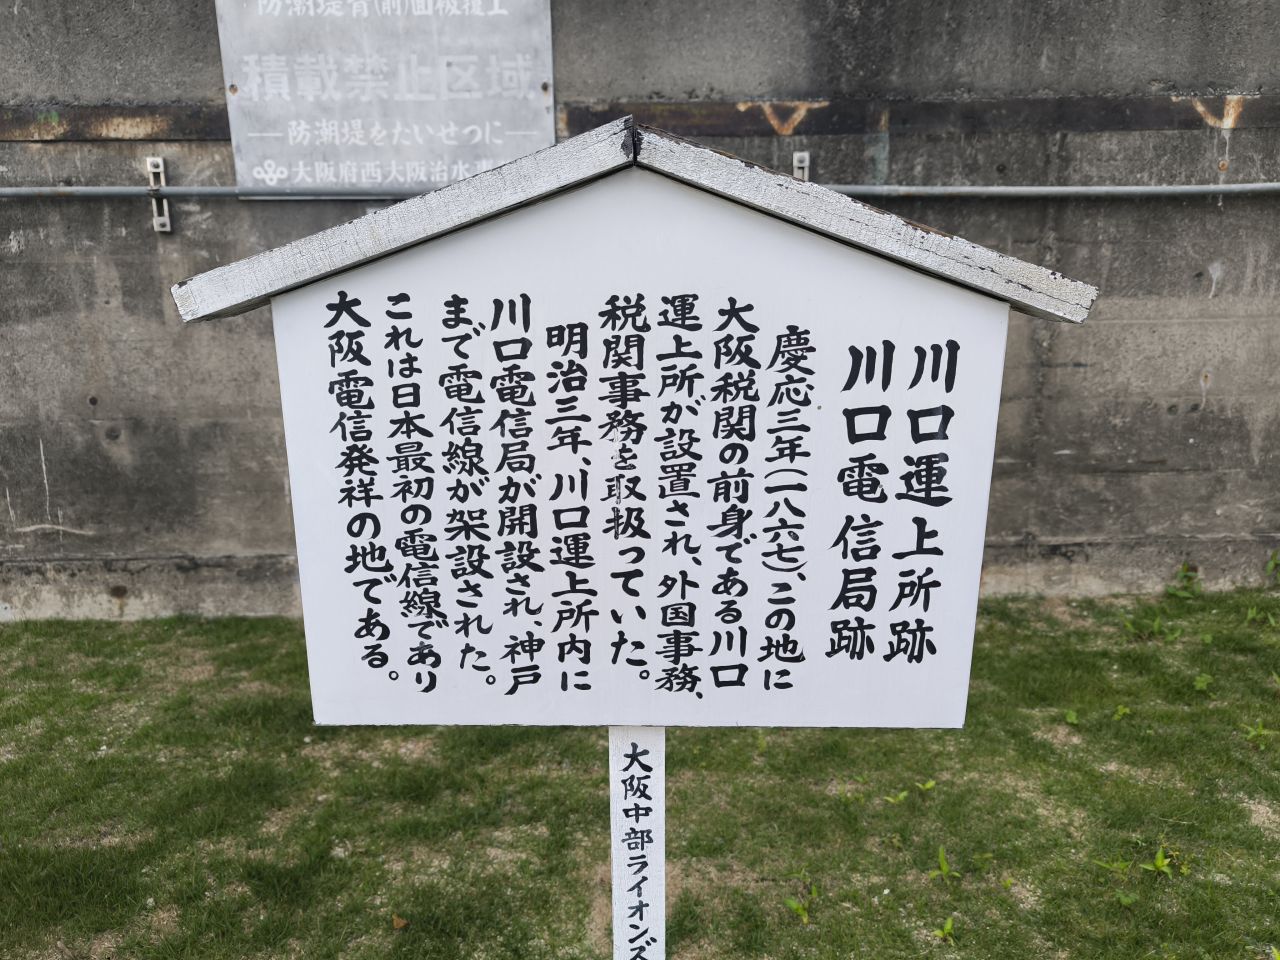 防潮堤背(前)面被覆工
積載禁止区域
―防潮堤をたいせつに―
大阪府西大阪治水事
川口運上所跡
川口電信局跡
慶応三年(一八六七)、この地に
大阪税関の前身である川口
運上所が設置され、外国事務、
税関事務を取扱っていた。
明治三年、川口運上所内に
川口電信局が開設され、神戸
まで電信線が架設された。
これは日本最初の電信線であり
大阪電信発祥の地である。
大阪中部ライオンズ